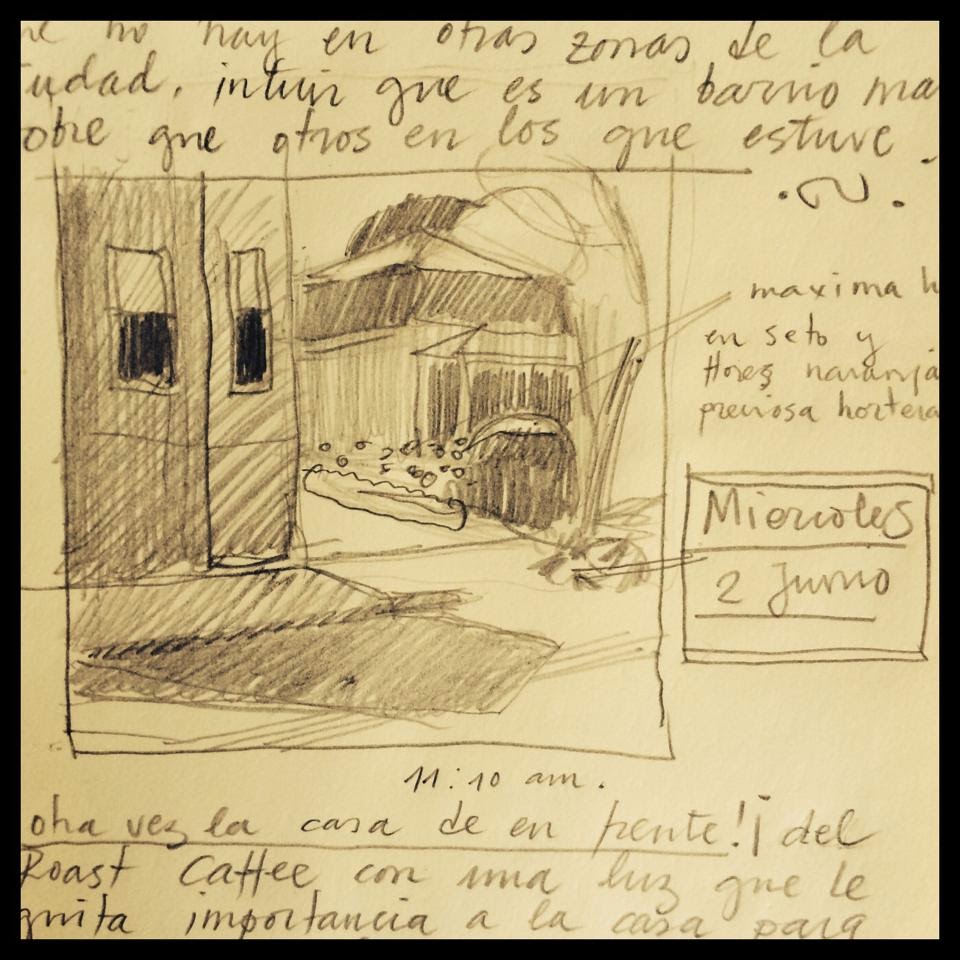 no hay en otras zonas de la
iudad, intuir que es un barrio ma
obre que otros en los que estuve.
maxima h
en seto y
flores naranja
preciosa hortera
Miercoles
2 Junio
11:10 am.
otra vez la casa de en frente!¡ del
Roast Caffee con una luz que le
quita importancia a la casa para